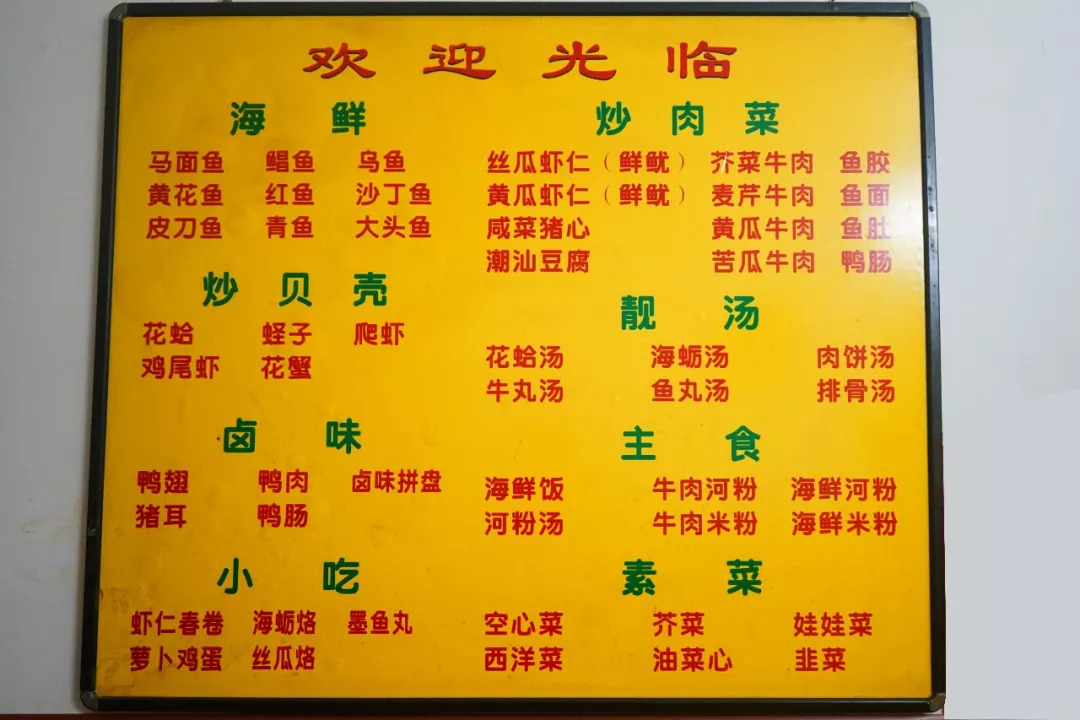 欢迎光临
海鲜
马面鱼 鲳鱼 乌鱼
黄花鱼 红鱼 沙丁鱼
皮刀鱼 青鱼 大头鱼
炒贝壳
花蛤 蛏子 爬虾
鸡尾虾 花蟹
卤味
鸭翅 鸭肉 卤味拼盘
猪耳 鸭肠
小吃
虾仁春卷 海蛎烙 墨鱼丸
萝卜鸡蛋 丝瓜烙
炒肉菜
丝瓜虾仁（鲜鱿） 芥菜牛肉 鱼胶
黄瓜虾仁（鲜鱿） 麦芹牛肉 鱼面
咸菜猪心 黄瓜牛肉 鱼肚
潮汕豆腐 苦瓜牛肉 鸭肠
靓汤
花蛤汤 海蛎汤 肉饼汤
牛丸汤 鱼丸汤 排骨汤
主食
海鲜饭 牛肉河粉 海鲜河粉
河粉汤 牛肉米粉 海鲜米粉
素菜
空心菜 芥菜 娃娃菜
西洋菜 油菜心 韭菜